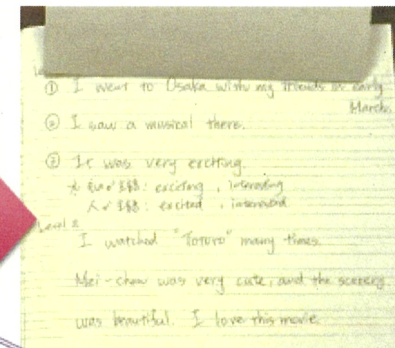 ① I went to Osaka with my friends in early
March.
② I saw a musical there.
③ It was very exciting.
: exciting , interesting
人 : excited , interested
Level 2
I watched "Totoro" many times.
Mei-chan was very cute, and the scenery
was beautiful. I love this movie.